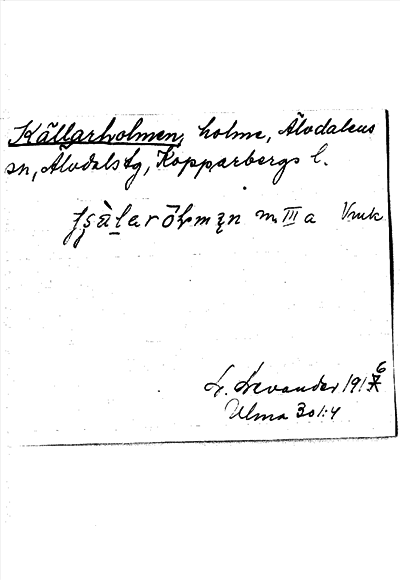 Källarholmen, holme, Älvdalens
sn, Älvdals tg, Kopparbergs l.
m. III a
L. Levander 1916
Ulma 301:4